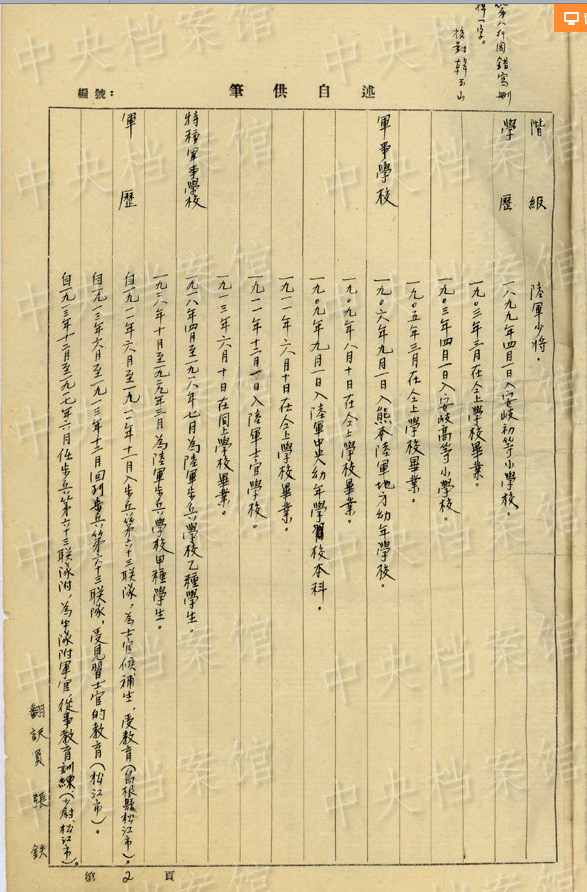 第八行因錯寫刪
掉一字。
校對 韓玉山
編號：
筆供自述
階級 陸軍少將。
學歷 一八九九年四月一日入安岐初等小學校。
一九〇三年三月在仝上學校畢業。
一九〇三年四月一日入安岐高等小學校。
一九〇五年三月在仝上學校畢業。
軍事學校 一九〇六年九月一日入熊本陸軍地方幼年學校。
一九〇九年八月十日在仝上學校畢業。
一九〇九年九月一日入陸軍中央幼年學校本科。
一九一一年六月十日在仝上學校畢業。
一九一一年十二月一日入陸軍士官學校。
一九一三年六月十日在同上學校畢業。
特種軍事學校 一九一八年四月至一九一八年七月為陸軍步兵學校乙種學生。
一九二八年十月至一九二九年三月為陸軍步兵學校甲種學生。
軍歷 自一九一一年六月至一九一一年十一月入步兵第六十三联隊，為士官候補生，受教育（島根縣松江市）。
自一九一三年六月至一九一三年十二月回到步兵第六十三联隊，受見習士官的教育（松江市）。
自一九一三年十二月至一九一七年六月任步兵第六十三联隊附，為中隊附軍官，從事教育訓練（少尉、松江市）。
翻訳員 張鉄
第2頁
中央档案馆